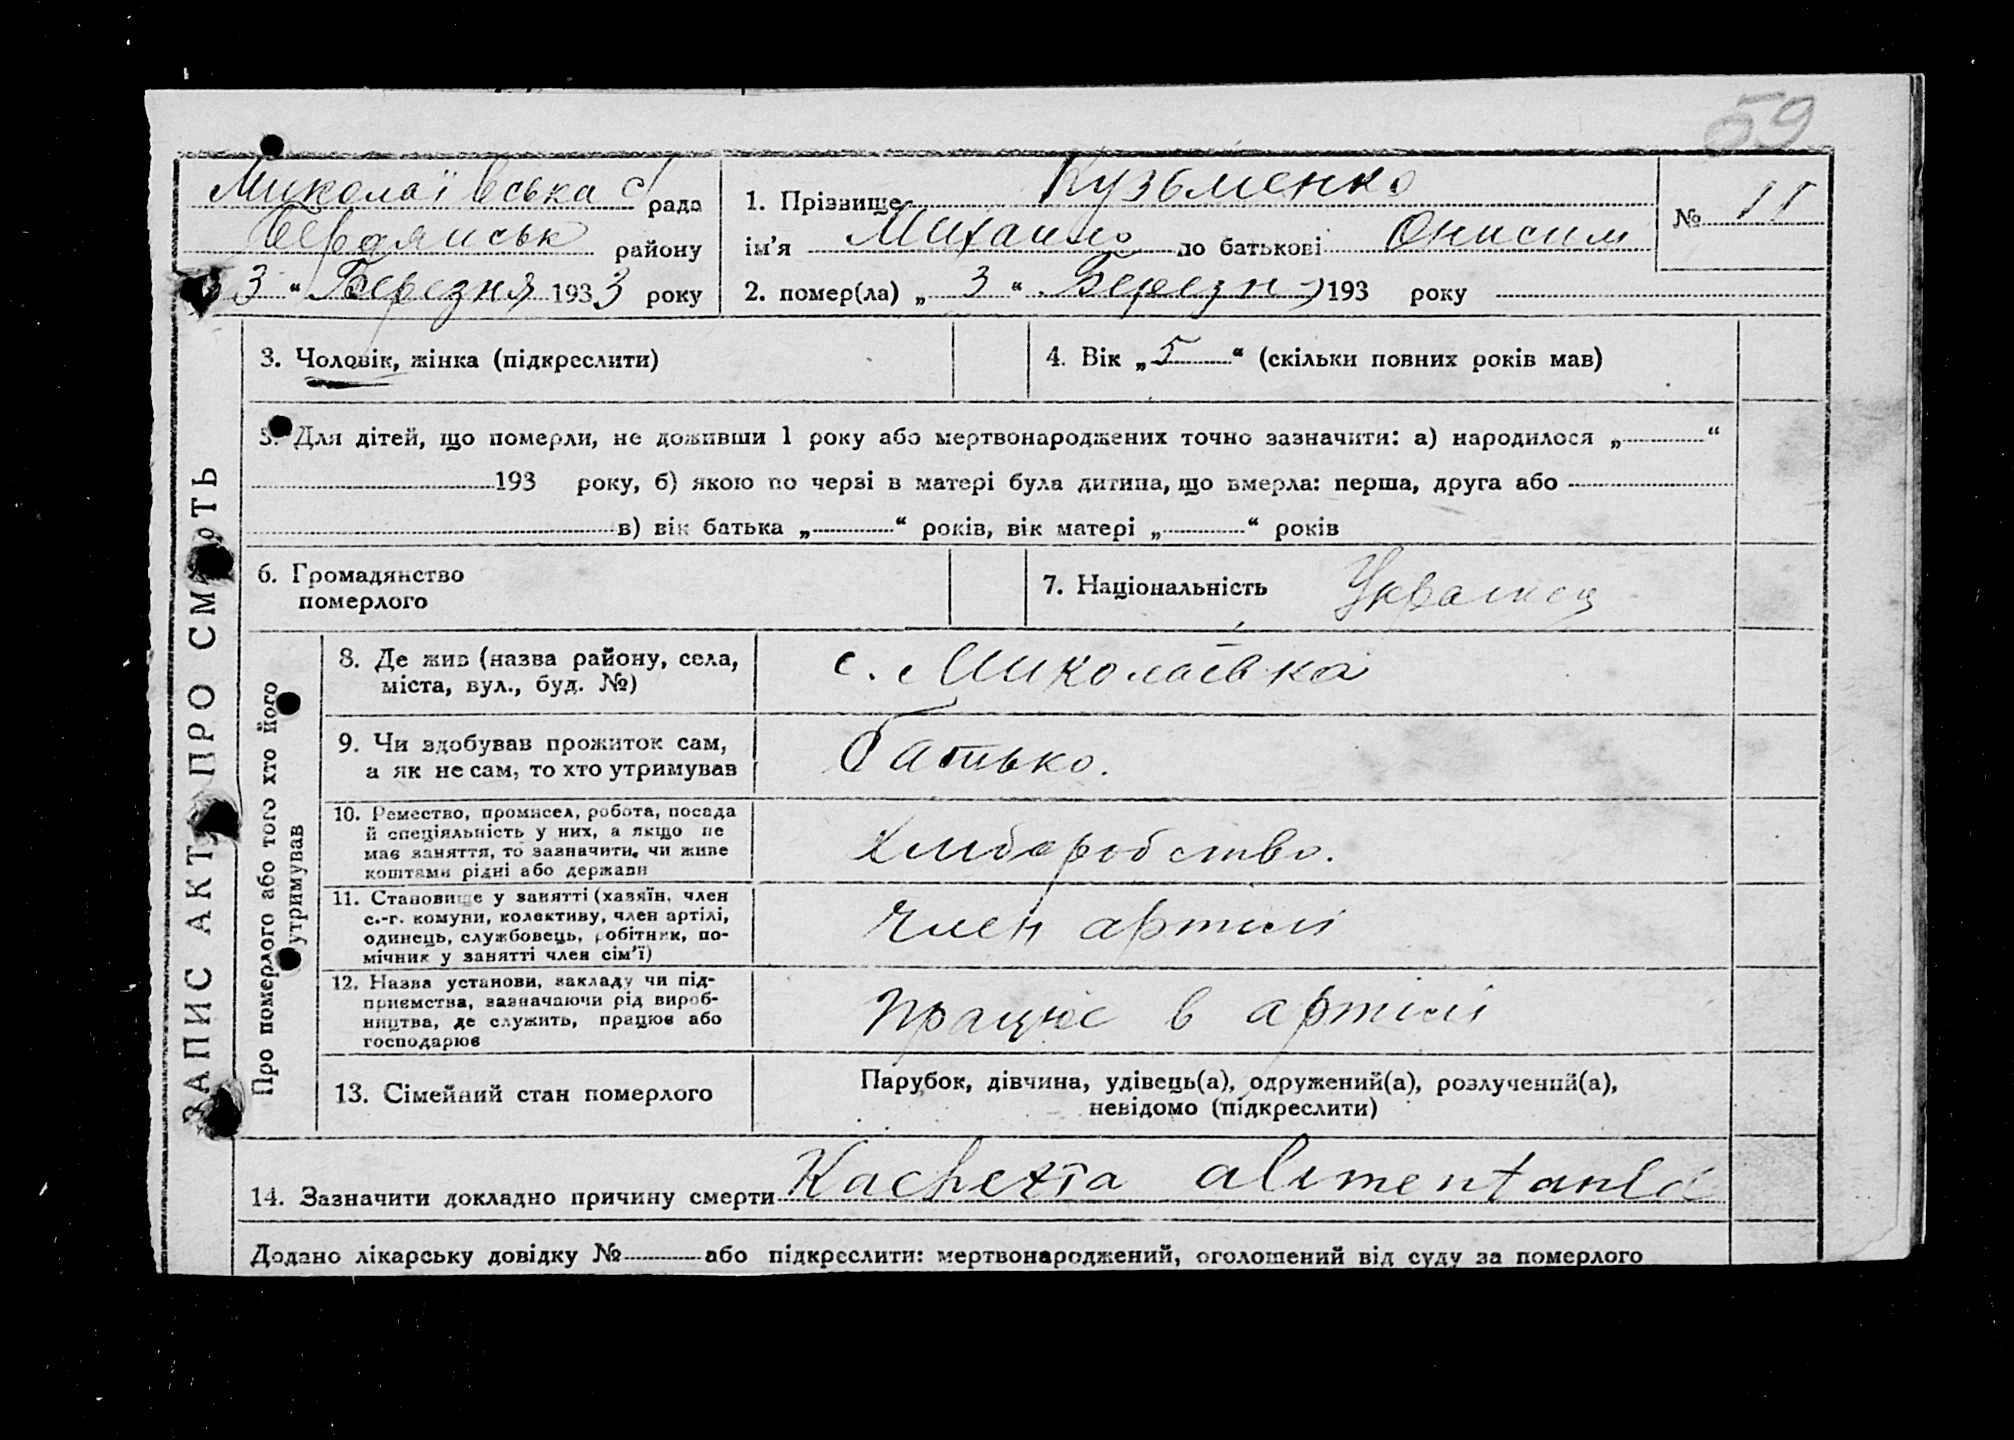 59
Миколаївська с/ рада
Бердянськ району
3 " Березня 1933 року
1. Прізвище Кузьменко
ім'я Михаило по батькові Онисим
№ 11
2. помер(ла) „ 3 " Березня 193 року
3. Чоловік, жінка (підкреслити)
4. Вік „ 5 " (скільки повних років мав)
5. Для дітей, що померли, не доживши 1 року або мертвонароджених точно зазначити: а) народилося „ "
193 року, б) якою по черзі в матері була дитина, що вмерла: перша, друга або
в) вік батька „ " років, вік матері „ " років
6. Громадянство
померлого
7. Національність Украинец
ЗАПИС АКТУ ПРО СМЕРТЬ
Про померлого або того хто його
утримував
8. Де жив (назва району, села,
міста, вул., буд. №)
с. Миколаївка
9. Чи здобував прожиток сам,
а як не сам, то хто утримував
батько.
10. Ремество, промисел, робота, посада
й спеціяльність у них, а якщо не
має заняття, то зазначити, чи живе
коштами рідні або держави
хлиборобство.
11. Становище у занятті (хазяїн, член
с.-г. комуни, колективу, член артілі,
одинець, службовець, робітник, по-
мічник у занятті член сім'ї)
член артілі
12. Назва установи, закладу чи під-
приємства, зазначаючи рід вироб-
ництва, де служить, працює або
господарює
працює в артілі
13. Сімейний стан померлого
Парубок, дівчина, удівець(а), одружений(а), розлучений(а),
невідомо (підкреслити)
14. Зазначити докладно причину смерти Kachexia alimentaria
Додано лікарську довідку № або підкреслити: мертвонароджений, оголошений від суду за померлого